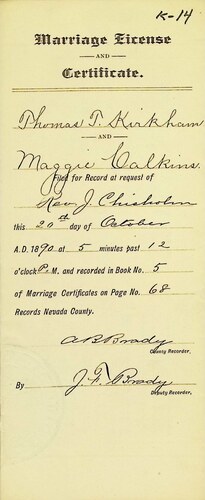 K-14
Marriage License
AND
Certificate.
Thomas T. Kirkham
AND
Maggie Calkins
Filed for Record at request of
Rev. J. Chisholm
this 20th day of October
A.D. 1890 at 5 minutes past 12
o'clock P. M. and recorded in Book No. 5
of Marriage Certificates on Page No. 68
Records Nevada County.
A B Brady
County Recorder,
By J. F. Brady
Deputy Recorder,